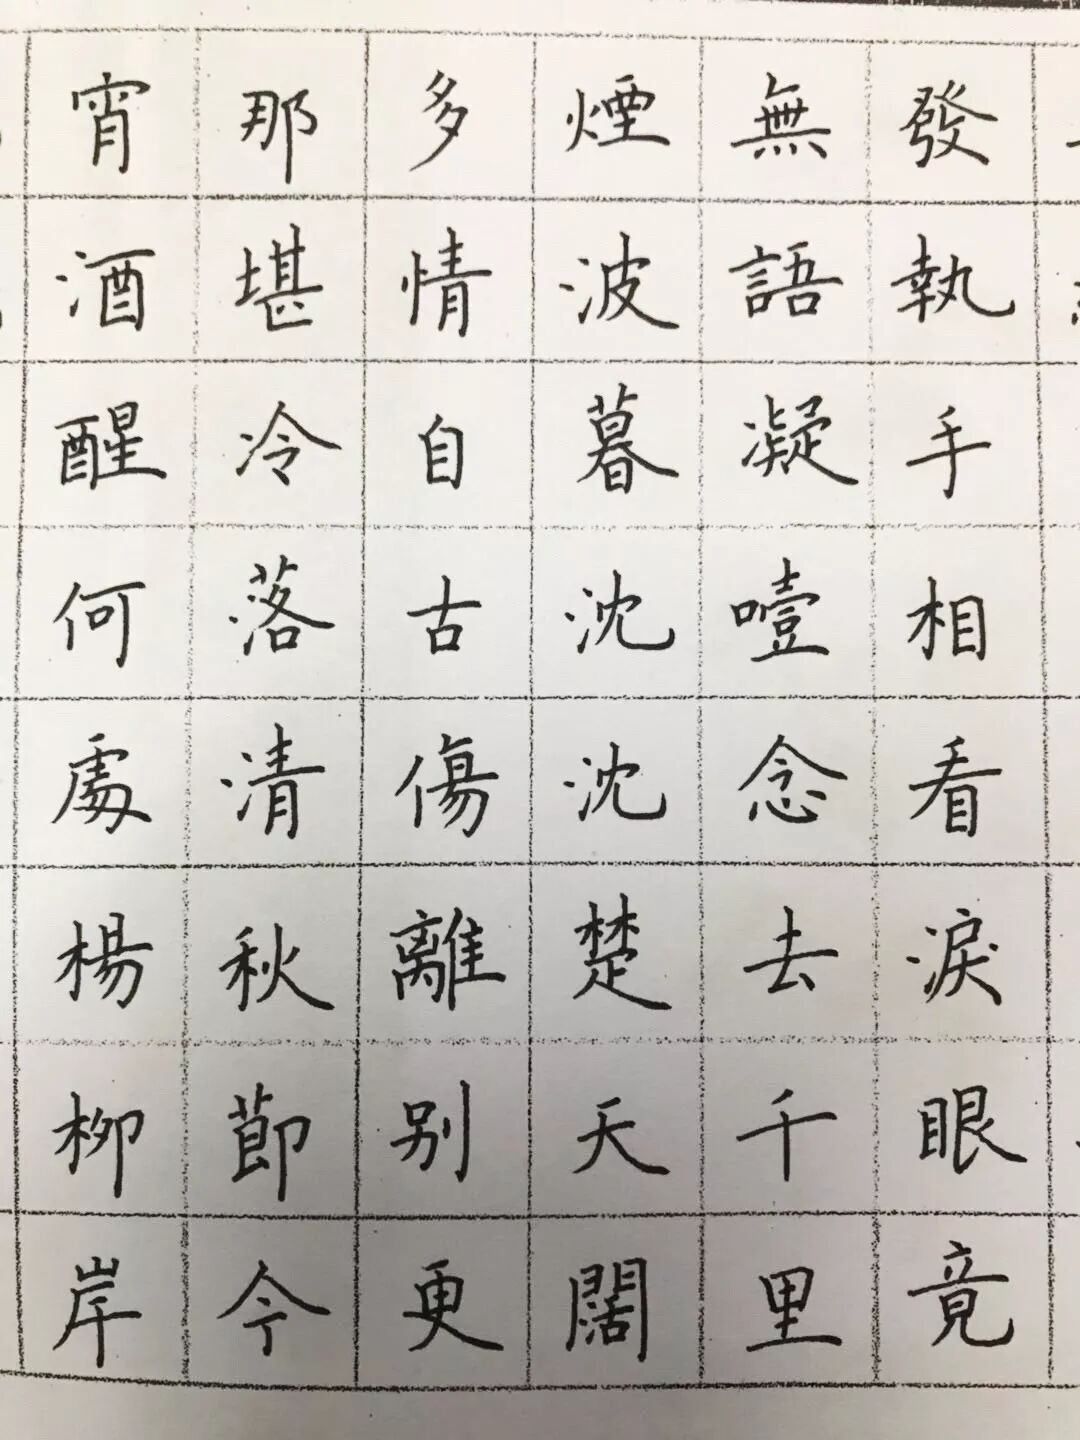 發執手相看淚眼竟
無語凝噎念去千里
煙波暮沈沈楚天闊
多情自古傷離別更
那堪冷落清秋節今
宵酒醒何處楊柳岸